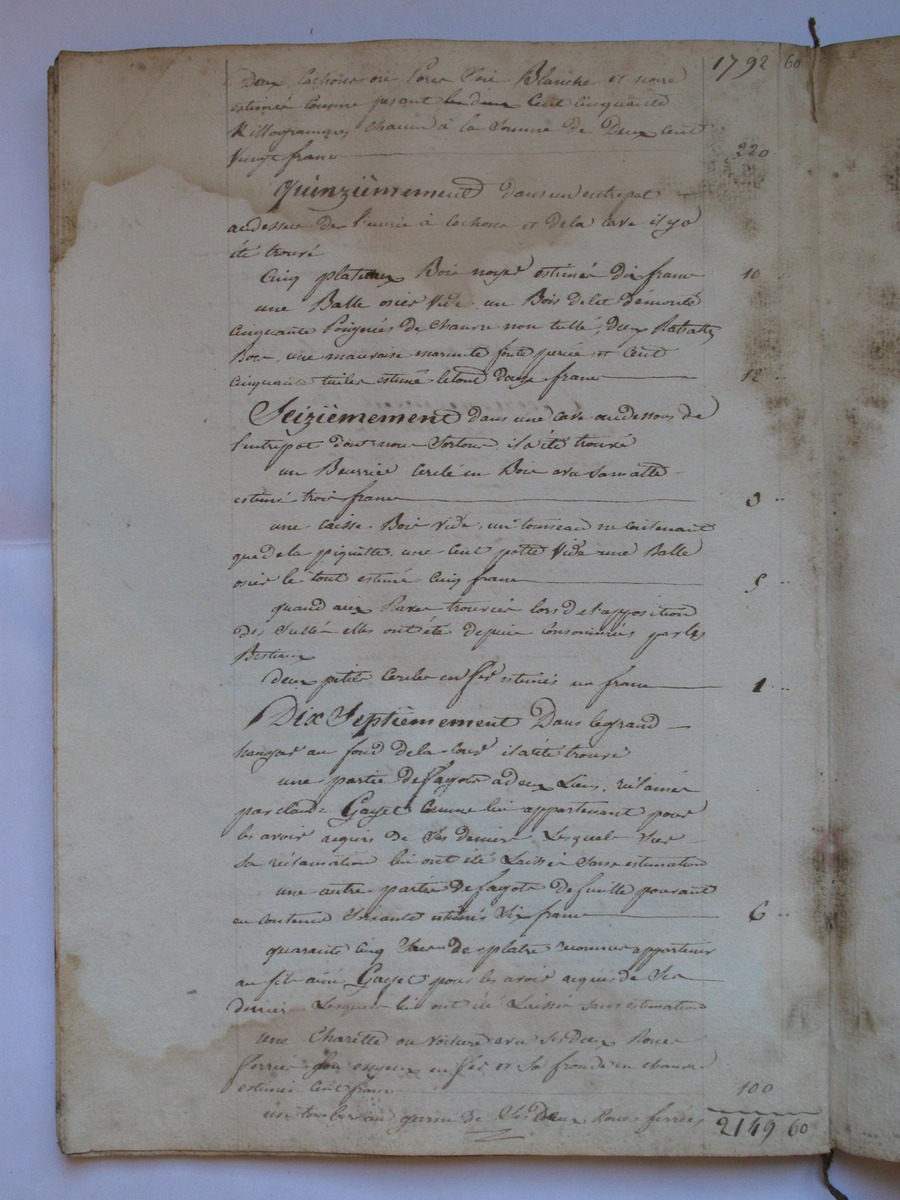 1792 60
Deux cochons ou Porcs Soie Blanche et noire
estimés comme pesant les deux Cent Cinquante
Killogrammes chacun à la Somme de Deux cent
Vingt francs 220
Quinzièmement dans un entrepot
audessus de l'ecurie à cochons et de la cave il y a
été trouvé
Cinq plateaux Bois noyer estimés dix francs 10 "
une Balle osier Vide un Bois de lit Démonté
Cinquante Poignées de chanvre non tillé, deux
Bois, une mauvaise marmite fonte percée et Cent
Cinquante tuiles estimé le tout douze francs 12 "
Seizièmement dans une cave audessous de
l'entrepot dont nous Sortons il a été trouvé
un Beurrier Cerclé en Bois avec
estimé trois francs 3 "
une caisse Bois Vide, un tonneau ne contenant
que de la piquette, une Cent Vide une Balle
osier le tout estimé Cinq francs 5 "
quand aux Raves trouvées lors de l'apposition
des Scellés elles ont été depuis Consommées par les
Bestiaux
Deux petits Cercles en fer estimés un franc 1 "
Dix Septièmement Dans le grand
hangar au fond de la Cour il a été trouvé
une partie de fagots a deux Liens, réclamés
par claude Gayet Comme lui appartenant pour
les avoir acquis de Ses deniers Lesquels Sur
Sa réclamation lui ont été Laissés Sans estimation
une autre partie de fagots de feuille pouvant
en contenir Soixante estimés Six francs 6 "
quarante Cinq Sacs de platre reconnus appartenir
au fils ainé Gayet pour les avoir acquis de Ses
deniers Lesquels lui ont été Laissés Sans estimation
une Charette ou Voiture avec Ses Deux Roues
ferrées Son essieux en fer et Sa
estimée Cent francs 100
un tombereau garni de Ses Deux Roues ferrées
2149 60